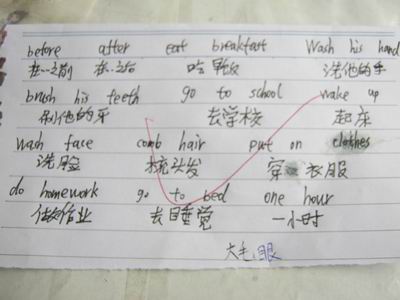 before after eat breakfast Wash his hand
在…之前 在…之后 吃早饭 洗他的手
brush his teeth go to school wake up
刷他的牙 去学校 起床
wash face comb hair put on clothes
洗脸 梳头发 穿 衣服
do homework go to bed one hour
做作业 去睡觉 一小时